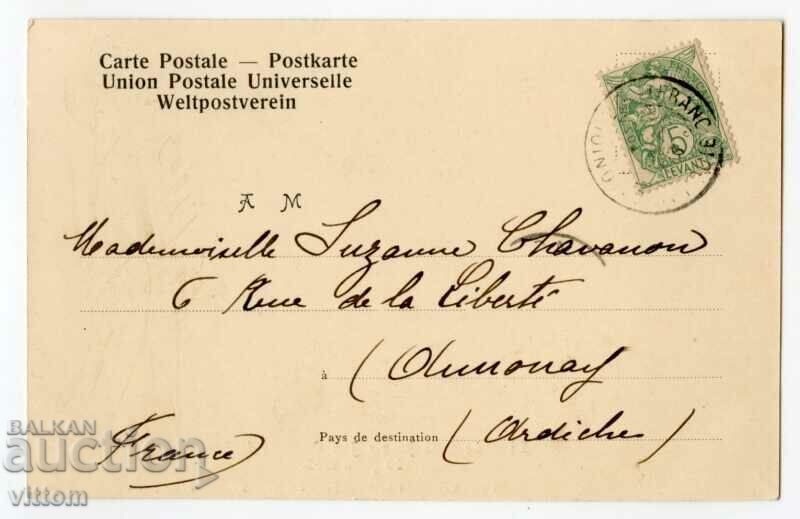 Carte Postale — Postkarte
Union Postale Universelle
Weltpostverein
FRANC
5c
LEVANT
A M
Mademoiselle Suzanne Chavanon
6 Rue de la Liberté
à (Annonay
Pays de destination (Ardèche)
France
BALKAN
auction
vittom